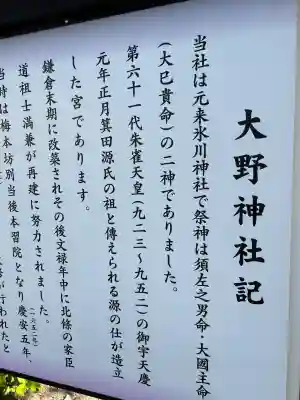 大野神社記
当社は元来氷川神社で祭神は須左之男命・大國主命
(大巳貴命)の二神でありました。
第六十一代朱雀天皇(九二三〜九五二)の御宇天慶
元年正月箕田源氏の祖と伝えられる源の仕が造立
した宮であります。
鎌倉末期に改築されその後文禄年中に北條の家臣
道祖士満兼が再建に努力されました。
当時は梅本坊別当後本習院となり慶安五年、
(一六五二年)